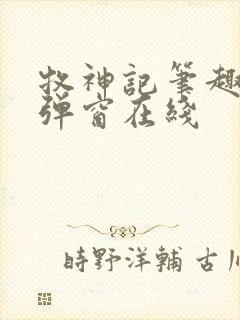 牧神記筆趣
弹窗在綫
時野洋輔 古川